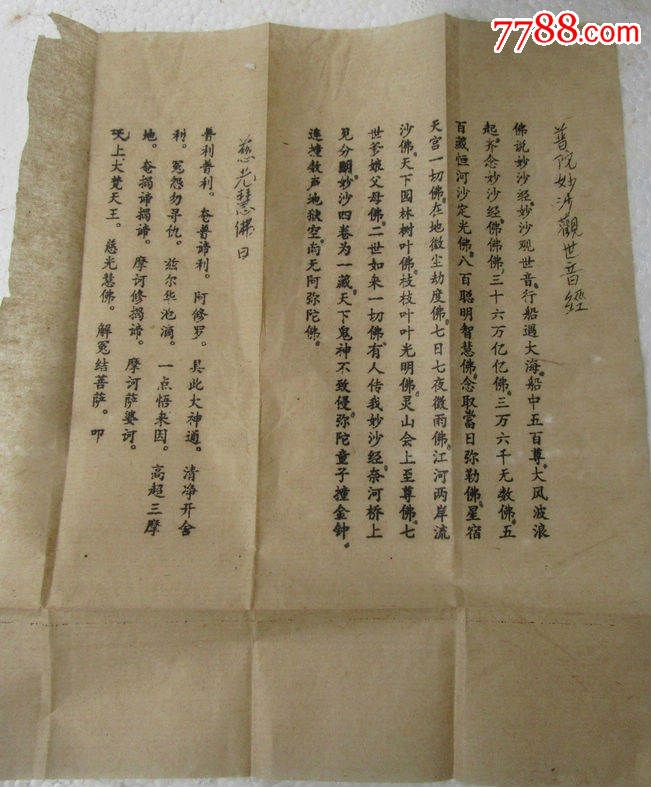 7788.com
普院妙沙觀世音經
佛说妙沙经。妙沙观世音。行船過大海。船中五百尊。大风波浪
起。齐念妙沙经。佛佛佛。三十六万亿亿佛。三万六千无数佛。五
百藏恒河沙定光佛。八百聪明智慧佛。念取當日弥勒佛。星宿
天宫一切佛。在地微尘劫度佛。七日七夜微雨佛。江河两岸流
沙佛。天下园林树叶佛。枝枝叶叶光明佛。灵山会上至尊佛。七
世爹娘父母佛。二世如来一切佛。有人传我妙沙经。奈河桥上
见分明。妙沙四卷为一藏。天下鬼神不致侵。弥陀童子撞金钟。
连撞数声地狱空。尚无阿弥陀佛。
慈光慧佛曰
普利普利。奄普谛利。阿修罗。具此大神通。清净开舍
利。冤怨勿寻仇。兹尔华池滴。一点悟来因。高超三摩
地。奄揭谛揭谛。摩诃修揭谛。摩诃萨婆诃。
上大梵天王。慈光慧佛。解冤结菩萨。叩